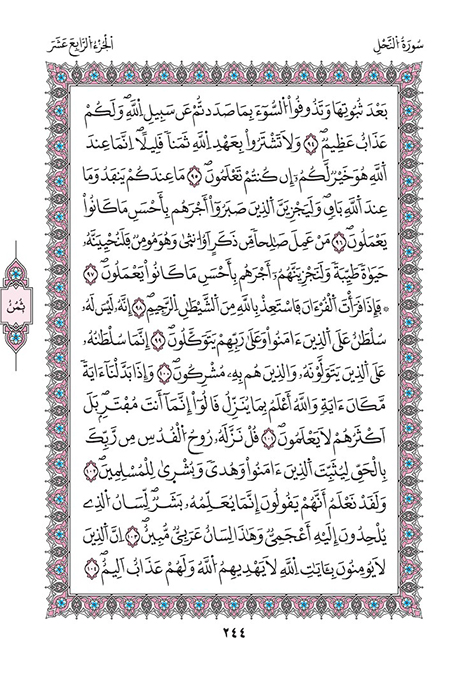 سُورَةُ النَّحْلِ
الْجُزْءُ الرَّابِعَ عَشَرَ
بَعْدَ ثُبُوتِهَا وَتَذُوقُواْ السُّوٓءَ بِمَا صَدَدتُّمْ عَن سَبِيلِ اِللَّهِ وَلَكُمْ
عَذَابٌ عَظِيمٌ ٩٤ وَلَا تَشْتَرُواْ بِعَهْدِ اِللَّهِ ثَمَناً قَلِيلاً اِنَّمَا عِندَ
اَللَّهِ هُوَ خَيْرٌ لَّكُمُۥٓ إِن كُنتُمْ تَعْلَمُونَ ٩٥ مَا عِندَكُمْ يَنفَدُ وَمَا
عِندَ اَللَّهِ بَاقٍ وَلَيَجْزِيَنَّ اَلذِينَ صَبَرُوٓاْ أَجْرَهُم بِأَحْسَنِ مَا كَانُواْ
يَعْمَلُونَ ٩٦ مَنْ عَمِلَ صَٰلِحاً مِّن ذَكَرٍ اَوُ انثَىٰ وَهُوَ مُومِنٌ فَلَنُحْيِيَنَّهُۥ
حَيَوٰةً طَيِّبَةً وَلَنَجْزِيَنَّهُمُۥٓ أَجْرَهُم بِأَحْسَنِ مَا كَانُواْ يَعْمَلُونَ ٩٧
۞ فَإِذَا قَرَأْتَ اَلْقُرْءَانَ فَاسْتَعِذْ بِاللَّهِ مِنَ اَلشَّيْطَٰنِ اِلرَّجِيمِ ٩٨ إِنَّهُۥ لَيْسَ لَهُۥ
سُلْطَٰنٌ عَلَى اَلذِينَ ءَامَنُواْ وَعَلَىٰ رَبِّهِمْ يَتَوَكَّلُونَ ٩٩ إِنَّمَا سُلْطَٰنُهُۥ
عَلَى اَلذِينَ يَتَوَلَّوْنَهُۥ وَالذِينَ هُم بِهِۦ مُشْرِكُونَ ١٠٠ وَإِذَا بَدَّلْنَآ ءَايَةً
مَّكَانَ ءَايَةٍ وَاللَّهُ أَعْلَمُ بِمَا يُنَزِّلُ قَالُوٓاْ إِنَّمَآ أَنتَ مُفْتَرٍ بَلَ
اَكْثَرُهُمْ لَا يَعْلَمُونَ ١٠١ قُلْ نَزَّلَهُۥ رُوحُ اُلْقُدُسِ مِن رَّبِّكَ
بِالْحَقِّ لِيُثَبِّتَ اَلذِينَ ءَامَنُواْ وَهُدىً وَبُشْرَىٰ لِلْمُسْلِمِينَ ١٠٢
وَلَقَدْ نَعْلَمُ أَنَّهُمْ يَقُولُونَ إِنَّمَا يُعَلِّمُهُۥ بَشَرٌ لِّسَانُ اُلذِے
يُلْحِدُونَ إِلَيْهِ أَعْجَمِيٌّ وَهَٰذَا لِسَانٌ عَرَبِيٌّ مُّبِينٌ ١٠٣ إِنَّ اَلذِينَ
لَا يُومِنُونَ بِـَٔايَٰتِ اِللَّهِ لَا يَهْدِيهِمُ اُللَّهُ وَلَهُمْ عَذَابٌ اَلِيمٌ ١٠٤
ثُمُنْ
٢٤٤